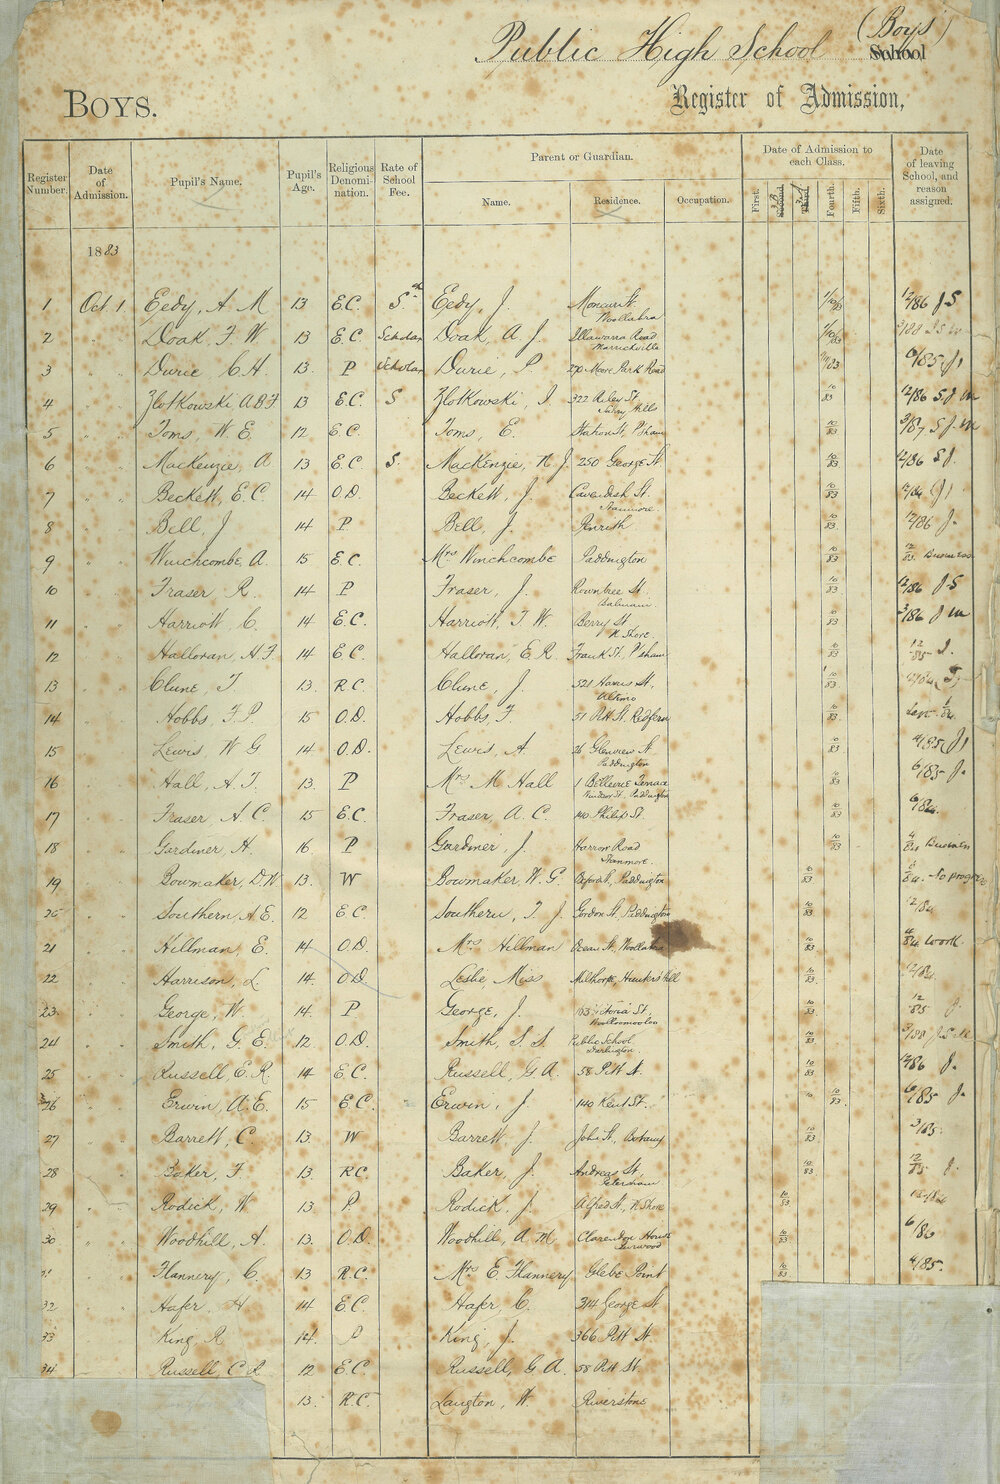 Public High School (Boys)
School
BOYS.
Register of Admission,
Register Number.
Date of Admission.
Pupil's Name.
Pupil's Age.
Religious Denomination.
Rate of School Fee.
Parent or Guardian.
Name.
Residence.
Occupation.
Date of Admission to each Class.
First.
Second.
Third.
Fourth.
Fifth.
Sixth.
Date of leaving School, and reason assigned.
1883
1 Oct 1 Eedy, A. M 13 E.C. Eedy, J. Moncur St. Woollahra 12/86 J.S
2 " " Doak, F. W. 13 E.C. Scholar Doak, A. J. Illawarra Road Marrickville
3 " " Durie C. H. 13. P Scholar Durie, P. 270 Moore Park Road 6/85 (J)
4 " " Zlotkowski, A B F 13 E.C. S Zlotkowski, I 322 Riley St. Surry Hills 10/83 12/86 S.J.M
5 " " Toms, W. E. 12 E.C. Toms, E. Station St, P'sham 10/83 3/87 S.J.M
6 " " MacKenzie, A 13 E.C. S. MacKenzie, N. J. 250 George St. 10/83 12/86 S J.
7 " " Beckett, E. C. 14 O.D. Beckett, J. Cavendish St. Stanmore 10/83
8 " " Bell, J 14 P Bell, J. Penrith 10/83 12/86 J.
9 " " Winchcombe, A. 15 E.C. Mrs Winchcombe Paddington 10/83 12/83 Business
10 " " Fraser, R. 14 P Fraser, J. Rowntree St. Balmain 10/83 12/86 J.S
11 " " Harriott, C. 14 E.C. Harriott, T. W. Berry St. N. Shore 10/83 3/86 J M
12 " " Halloran, H. F 14 E.C. Halloran, E. R. Frank St. P'sham 10/83 12/85 J.
13 " " Clune, T. 13. R.C. Clune, J. 521 Harris St, Ultimo 10/83
14 " " Hobbs, F. P. 15 O.D. Hobbs, F. 51 Pitt St. Redfern 10/83 Left
15 " " Lewis W G 14 O.D. Lewis, A. 26 Glenview St Paddington 10/83
16 " " Hall, A. T. 13. P Mrs. M Hall 1 Bellevue Terrace Windsor St. Paddington 10/83 6/85 J.
17 " " Fraser A. C. 15 E.C. Fraser, A. C. 140 Philip St. 10/83 6/84.
18 " " Gardiner, H. 16 P Gardiner, J. Harrow Road Stanmore. 10/83 4/84 Business
19 " " Bowmaker, D. W 13. W Bowmaker, W. G. Oxford St, Paddington 10/83 No progress
20 " " Southern, A E. 12 E.C. Southern, T. J. Gordon St. Paddington 10/83
21 " " Hillman, E. 14 O.D. Mrs Hillman Ocean St. Woollahra 10/83 4/84 work.
22 " " Harrison, L. 14. O.D. Leslie, Miss Milthorpe, Hunters Hill 10/83
23. " " George, W. 14. P George, J. Victoria St, Woolloomooloo 10/83 12/85 J.
24 " " Smith, G. E. 12 O.D. Smith, S. S Public School, Darlington. 10/83
25 " " Russell, E. R. 14 E.C. Russell, G A. 58 Pitt St. 10/83 12/86 J.
26 " " Erwin, A. E. 15 E.C. Erwin, J. 140 Kent St. 10/83 6/85 J.
27 " " Barrett, C. 13. W Barrett, J. John St, Botany 10/83 3/85.
28 " " Baker, F. 13. R.C. Baker, J. Andreas St, Petersham 10/83 12/85 J.
29 " " Rodick, W 13. P Rodick, J. Alfred St, N Shore 10/83
30 " " Woodhill, A. 13. O.D. Woodhill, A. M. Clarendon House Burwood 10/83
" " Flannery, C. 13 R.C. Mrs E. Flannery Glebe Point 10/83 4/85.
32 " " Hafer, H 14 E.C. Hafer, C. 314 George St
33 " " King, R 14. P King, J. 366 Pitt St.
34 Russell, C R 12 E.C. Russell, G A. 58 Pitt St.
13. R.C. Langton, W. Riverstone